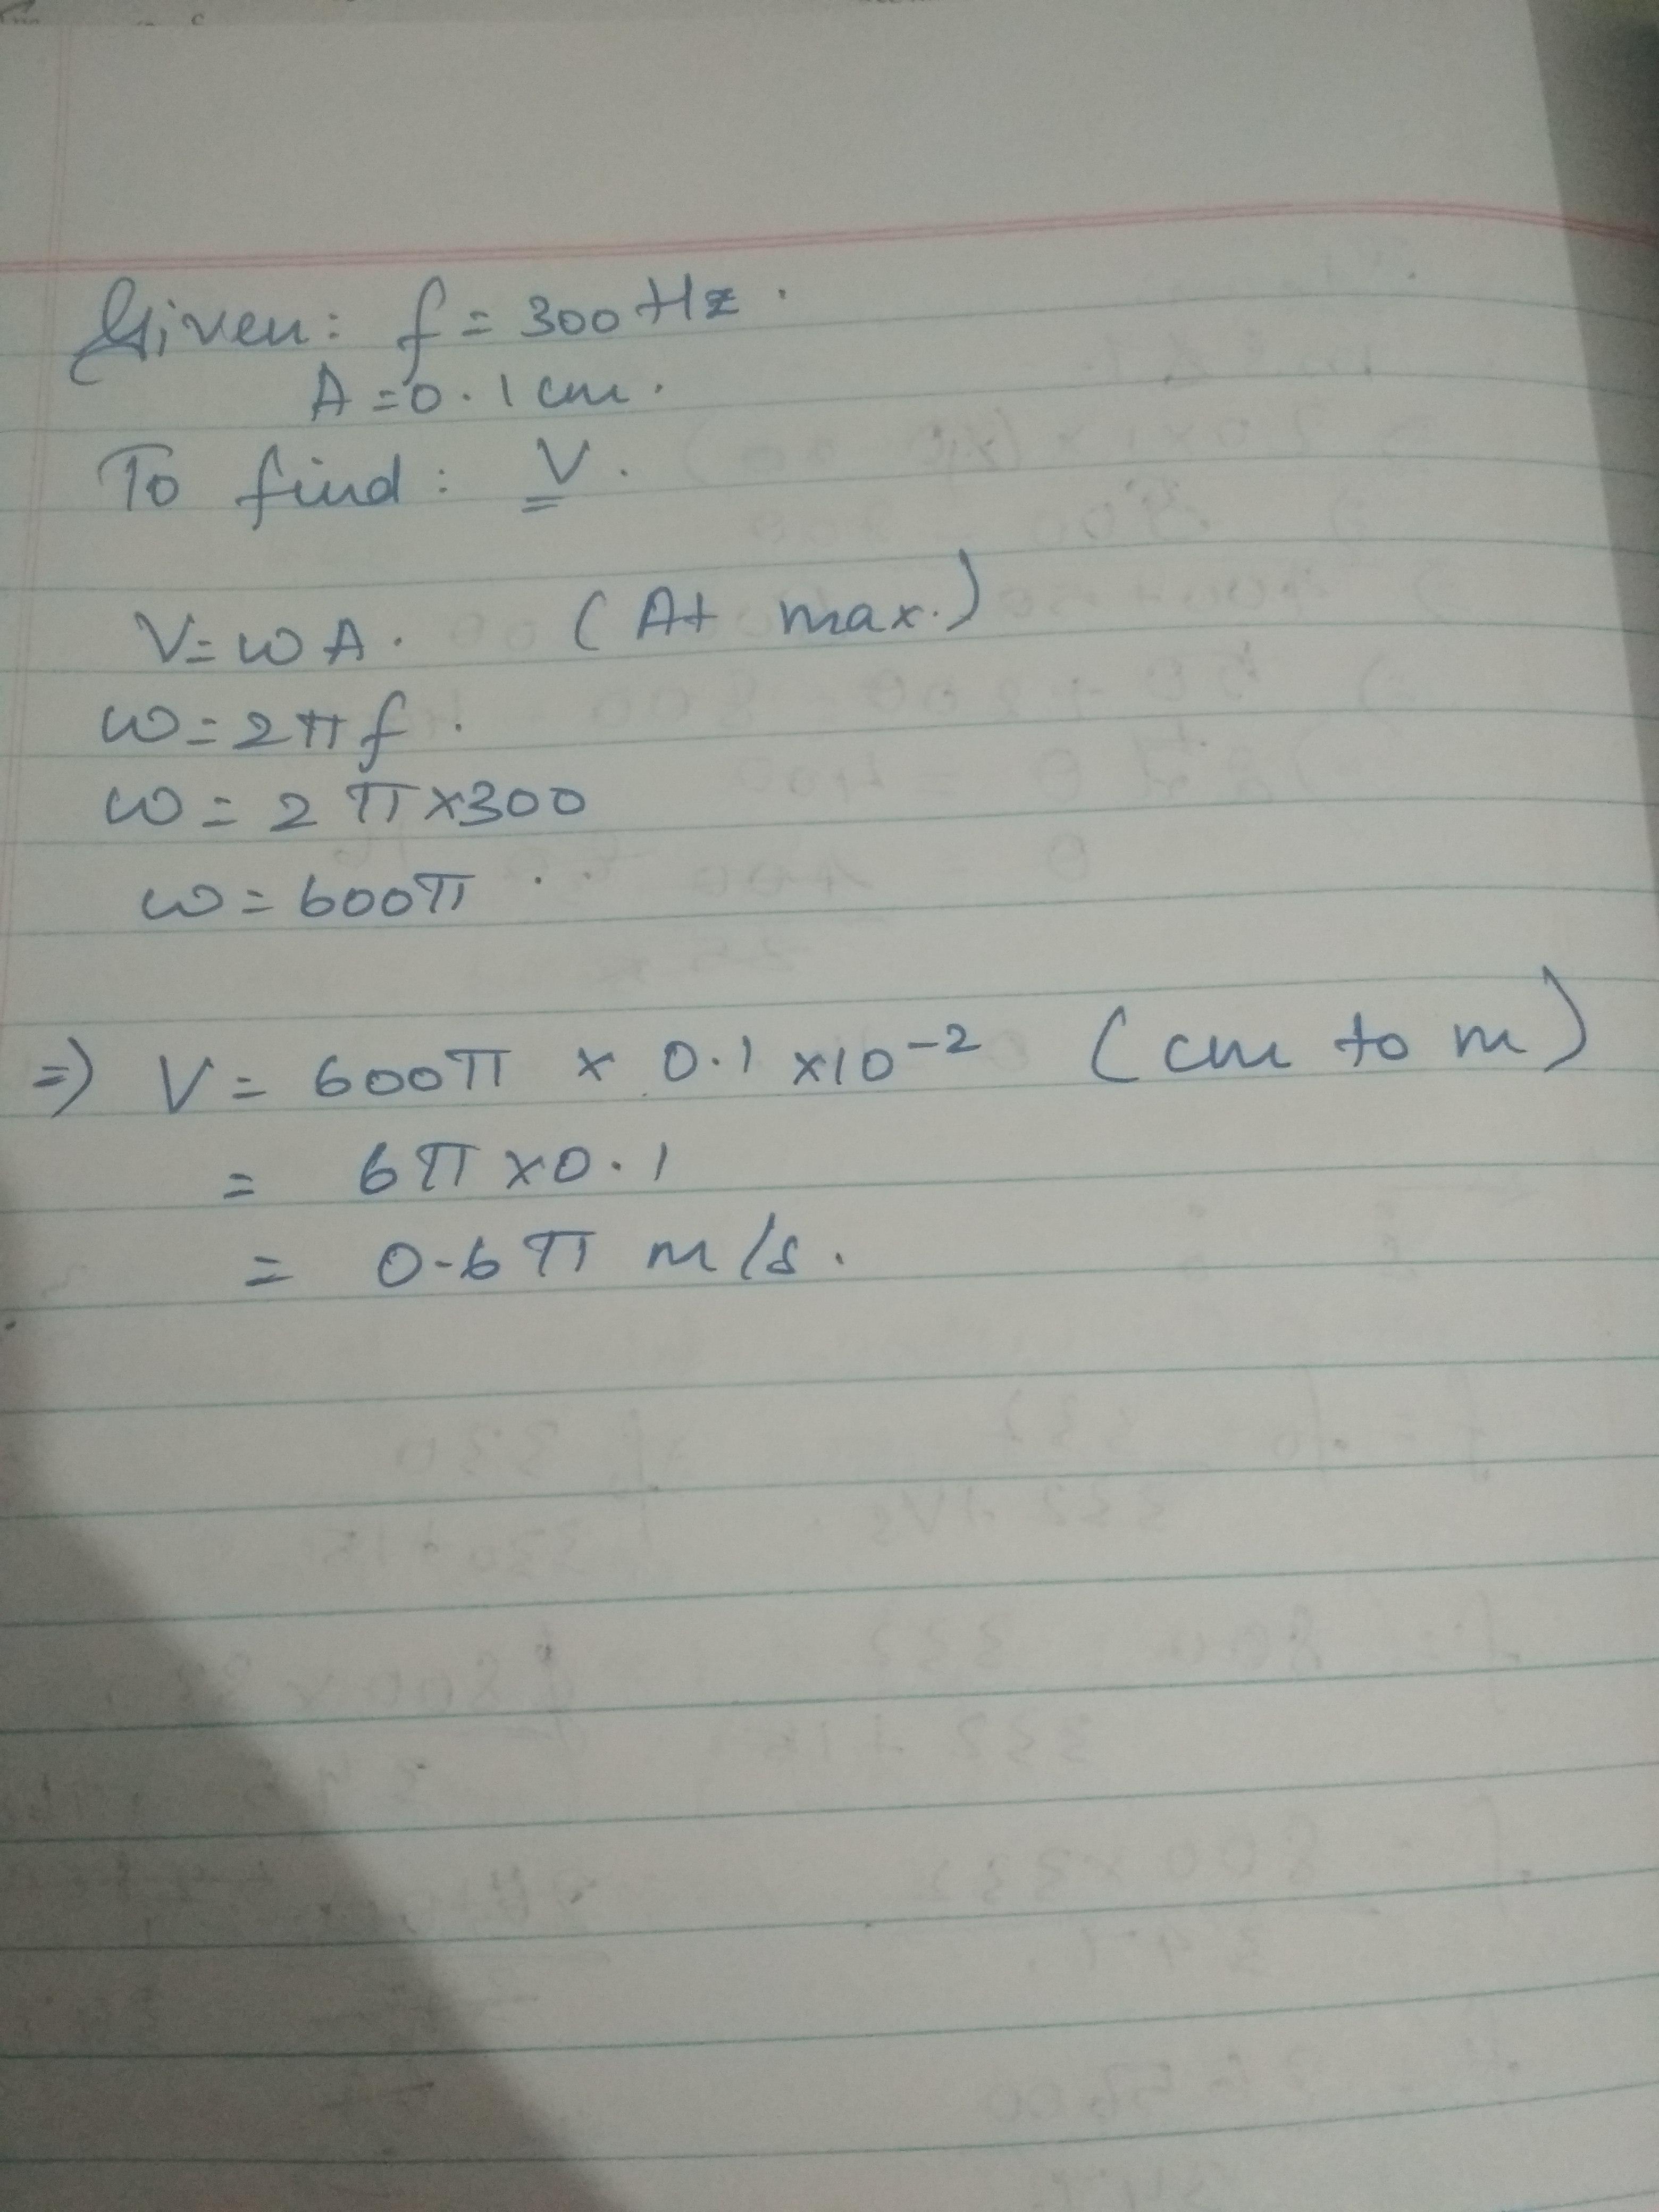 Given: f = 300 Hz.
A = 0.1 cm.
To find: V.
V = ωA. (At max.)
ω = 2πf.
ω = 2π×300
ω = 600π
⇒ V = 600π × 0.1 ×10⁻² (cm to m)
= 6π×0.1
= 0.6π m/s.